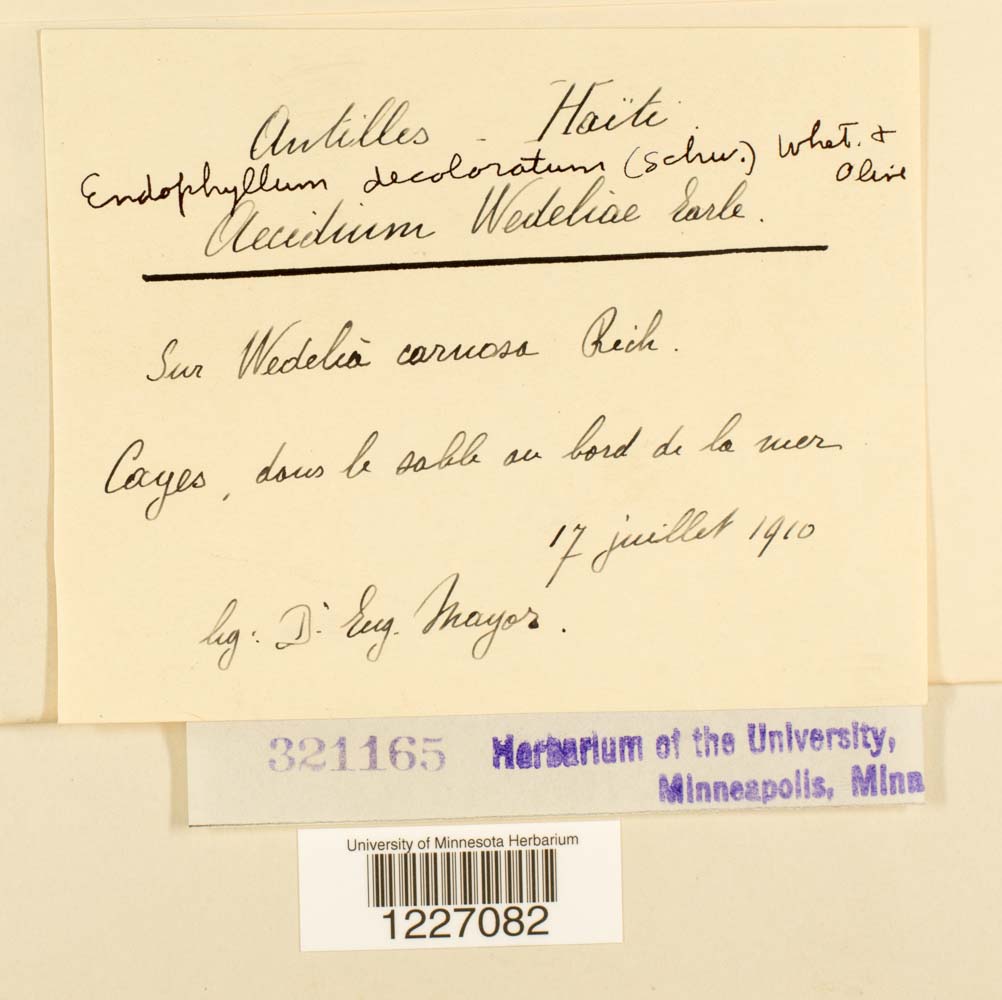 Antilles - Haïti
Endophyllum decoloratum (Schw.) Whet. &
Olive
Aecidium Wedeliae Earle.
Sur Wedelia carnosa Rich.
Cayes, dans le sable au bord de la mer
17 juillet 1910
leg: Dr. Eug. Mayor.
321165 Herbarium of the University,
Minneapolis, Minn
University of Minnesota Herbarium
1227082